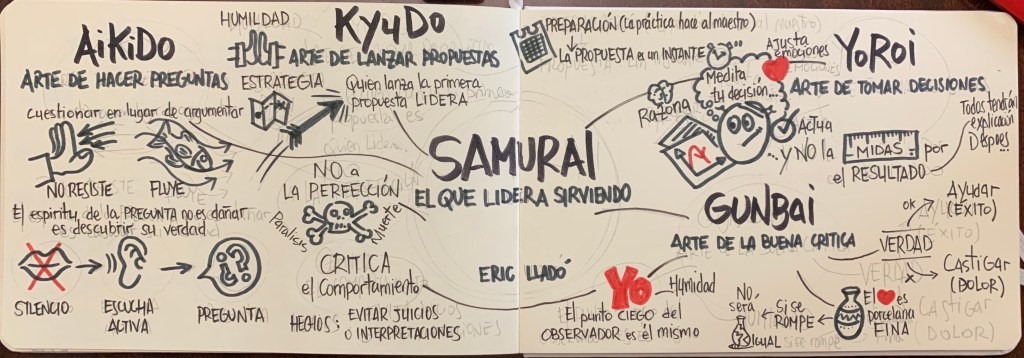 AiKiDo
ARTE DE HACER PREGUNTAS
Cuestionar en lugar de argumentar
NO RESISTE
FLUYE
El espíritu de la PREGUNTA no es dañar
es descubrir su verdad
SILENCIO
ESCUCHA
ACTIVA
¿?¿?
PREGUNTA
HUMILDAD
KYuDo
ARTE DE LANZAR PROPUESTAS
ESTRATEGIA
Quien lanza la primera
propuesta LIDERA
NO a
LA PERFECCIÓN
Parálisis
Muerte
CRITICA
el Comportamiento
HECHOS:
EVITAR JUICIOS
o INTERPRETACIONES
SAMURAI
EL QUE LIDERA SIRVIENDO
ERIC LLADÓ
PREPARACIÓN (La práctica hace al maestro)
LA PROPUESTA es un INSTANTE
Ajusta
emociones
YoRoi
ARTE DE TOMAR DECISIONES
Medita
tu decisión...
Razona
Actua
...y NO la
MIDAS
por
el RESULTADO
Todas tendrán
explicación
Después...
GUNBai
ARTE DE LA BUENA CRITICA
Yo
Humildad
El punto CIEGO del
OBSERVADOR es él mismo
VERDAD
OK
Ayudar
(ÉXITO)
X
CASTIGAR
(DOLOR)
El ❤ es
porcelana
FINA
Si se
ROMPE
NO
será
IGUAL